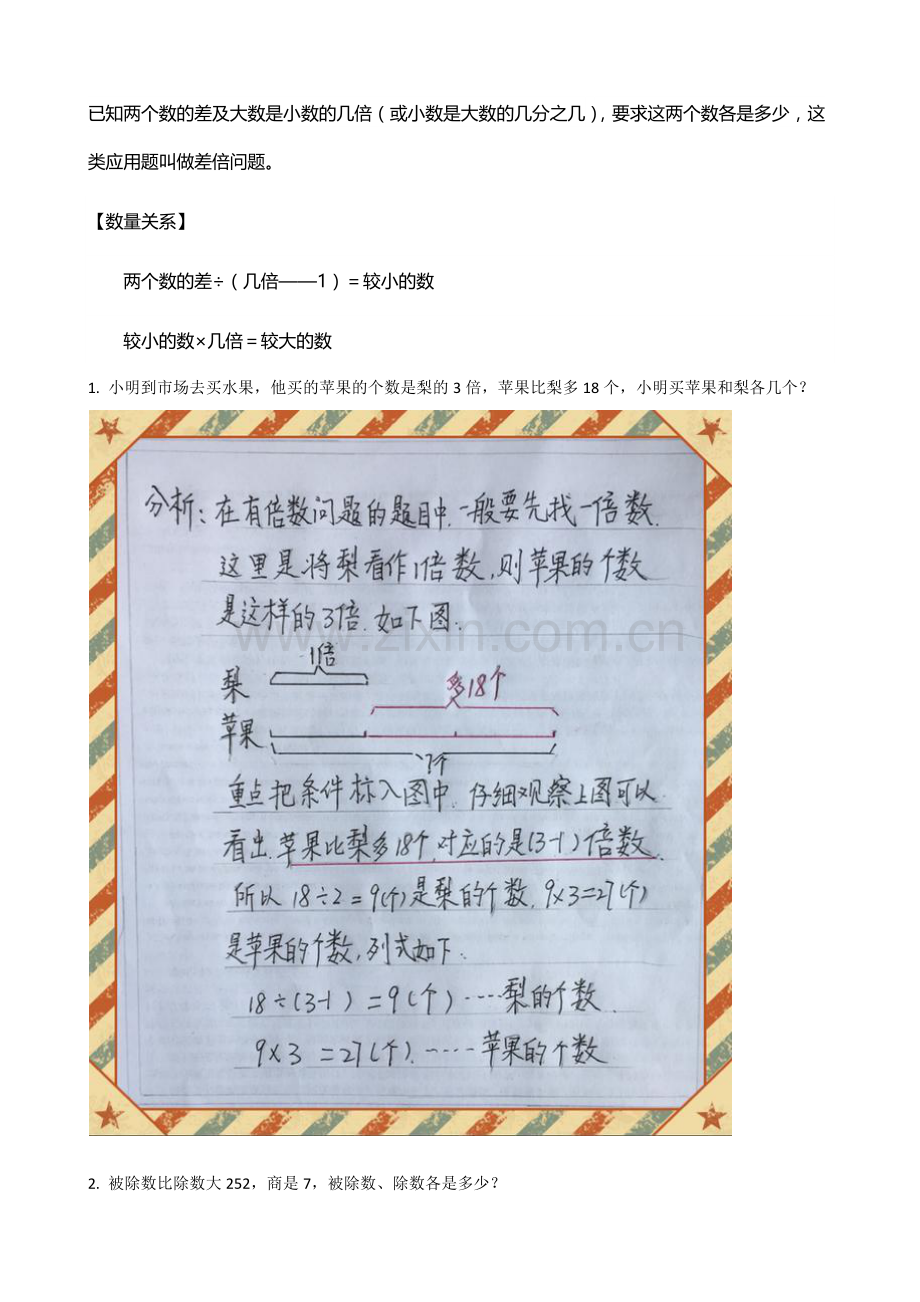 已知两个数的差及大数是小数的几倍（或小数是大数的几分之几），要求这两个数各是多少，这
类应用题叫做差倍问题。
【数量关系】
两个数的差÷（几倍——1）＝较小的数
较小的数×几倍＝较大的数
1. 小明到市场去买水果，他买的苹果的个数是梨的 3 倍，苹果比梨多 18 个，小明买苹果和梨各几个？
分析：在有倍数问题的题目中.一般要先找一倍数.
这里是将梨看作1倍数,则苹果的个数
是这样的3倍.如下图.
www.zixin.com.cn
1倍
梨
多18个
苹果
?个
重点把条件标入图中.仔细观察上图可以
看出.苹果比梨多18个,对应的是(3-1)倍数.
所以18÷2=9(个)是梨的个数.9×3=27(个)
是苹果的个数,列式如下.
18÷(3-1)=9(个)·····梨的个数.
9×3=27(个).·····苹果的个数
2. 被除数比除数大 252，商是 7，被除数、除数各是多少？